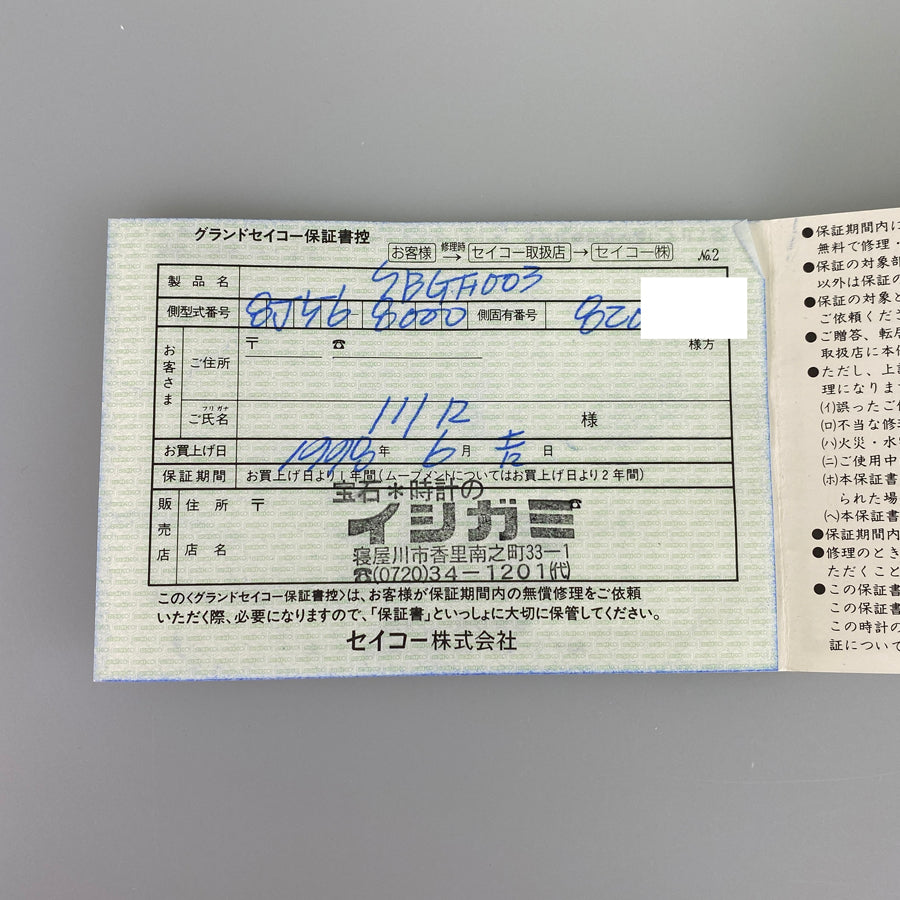 グランドセイコー保証書控
お客様 修理時→ セイコー取扱店 → セイコー(株) No.2
製品名 SBGH003
側型式番号 8J56 8000 側固有番号 820
お客さま
〒 ☎ 様方
ご住所
フリガナ
ご氏名 11/12 様
お買上げ日 1998年 6月 吉日
保証期間 お買上げ日より1年間(ムーブメントについてはお買上げ日より2年間)
販売店
住所 〒 ☎
店名
宝石*時計の
イシガミ
寝屋川市香里南之町33-1
☎(0720)34-1201(代)
この〈グランドセイコー保証書控〉は、お客様が保証期間内の無償修理をご依頼
いただく際、必要になりますので、「保証書」といっしょに大切に保管してください。
セイコー株式会社
●保証期間内に
無料で修理・
●保証の対象部
以外は保証の
●保証の対象と
ご依頼くださ
●ご贈答、転居
取扱店に本保
●ただし、上記
理になります
(イ)誤ったご使
(ロ)不当な修理
(ハ)火災・水害
(ニ)ご使用中
(ホ)本保証書
られた場
(ヘ)本保証書
●保証期間内
●修理のとき
ただくこと
●この保証書
この保証書
この時計の
証について